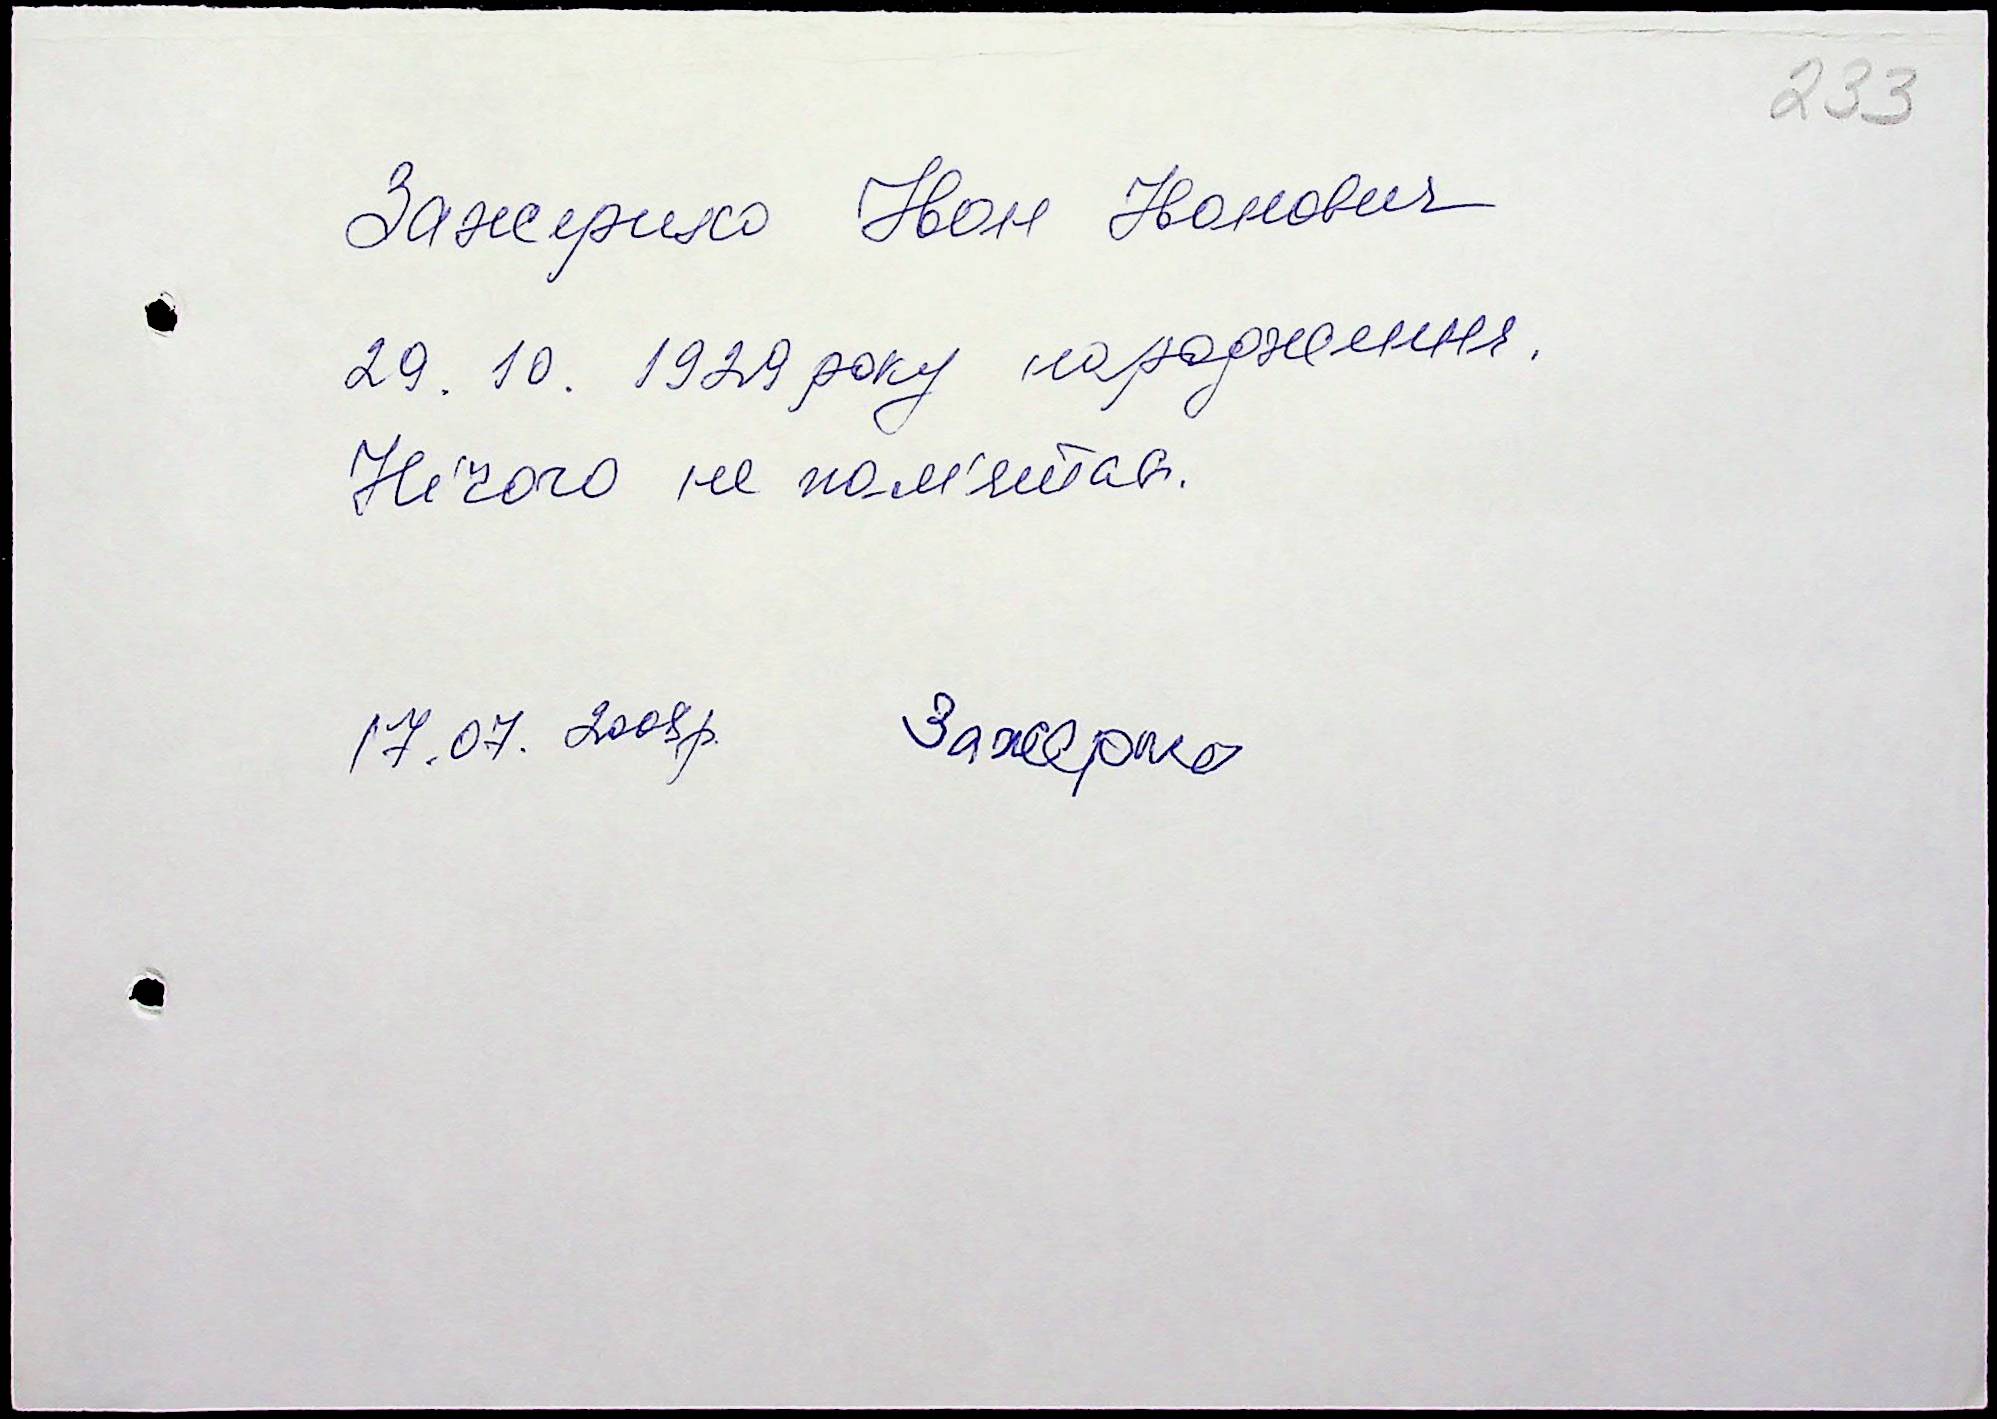 233
Зажерико Іван Іванович
29. 10. 1929 року народження.
Нічого не пам'ятає.
17.07. 2008р. Зажерико